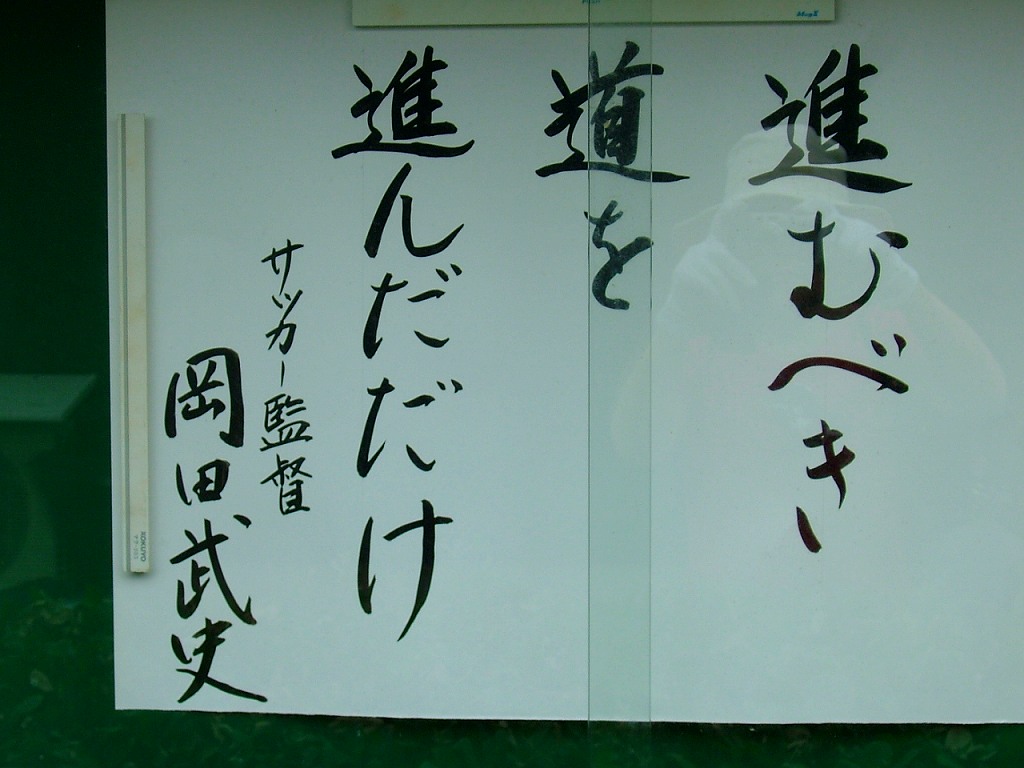 進むべき
道を
進んだだけ
サッカー監督
岡田武史
KOKUYO